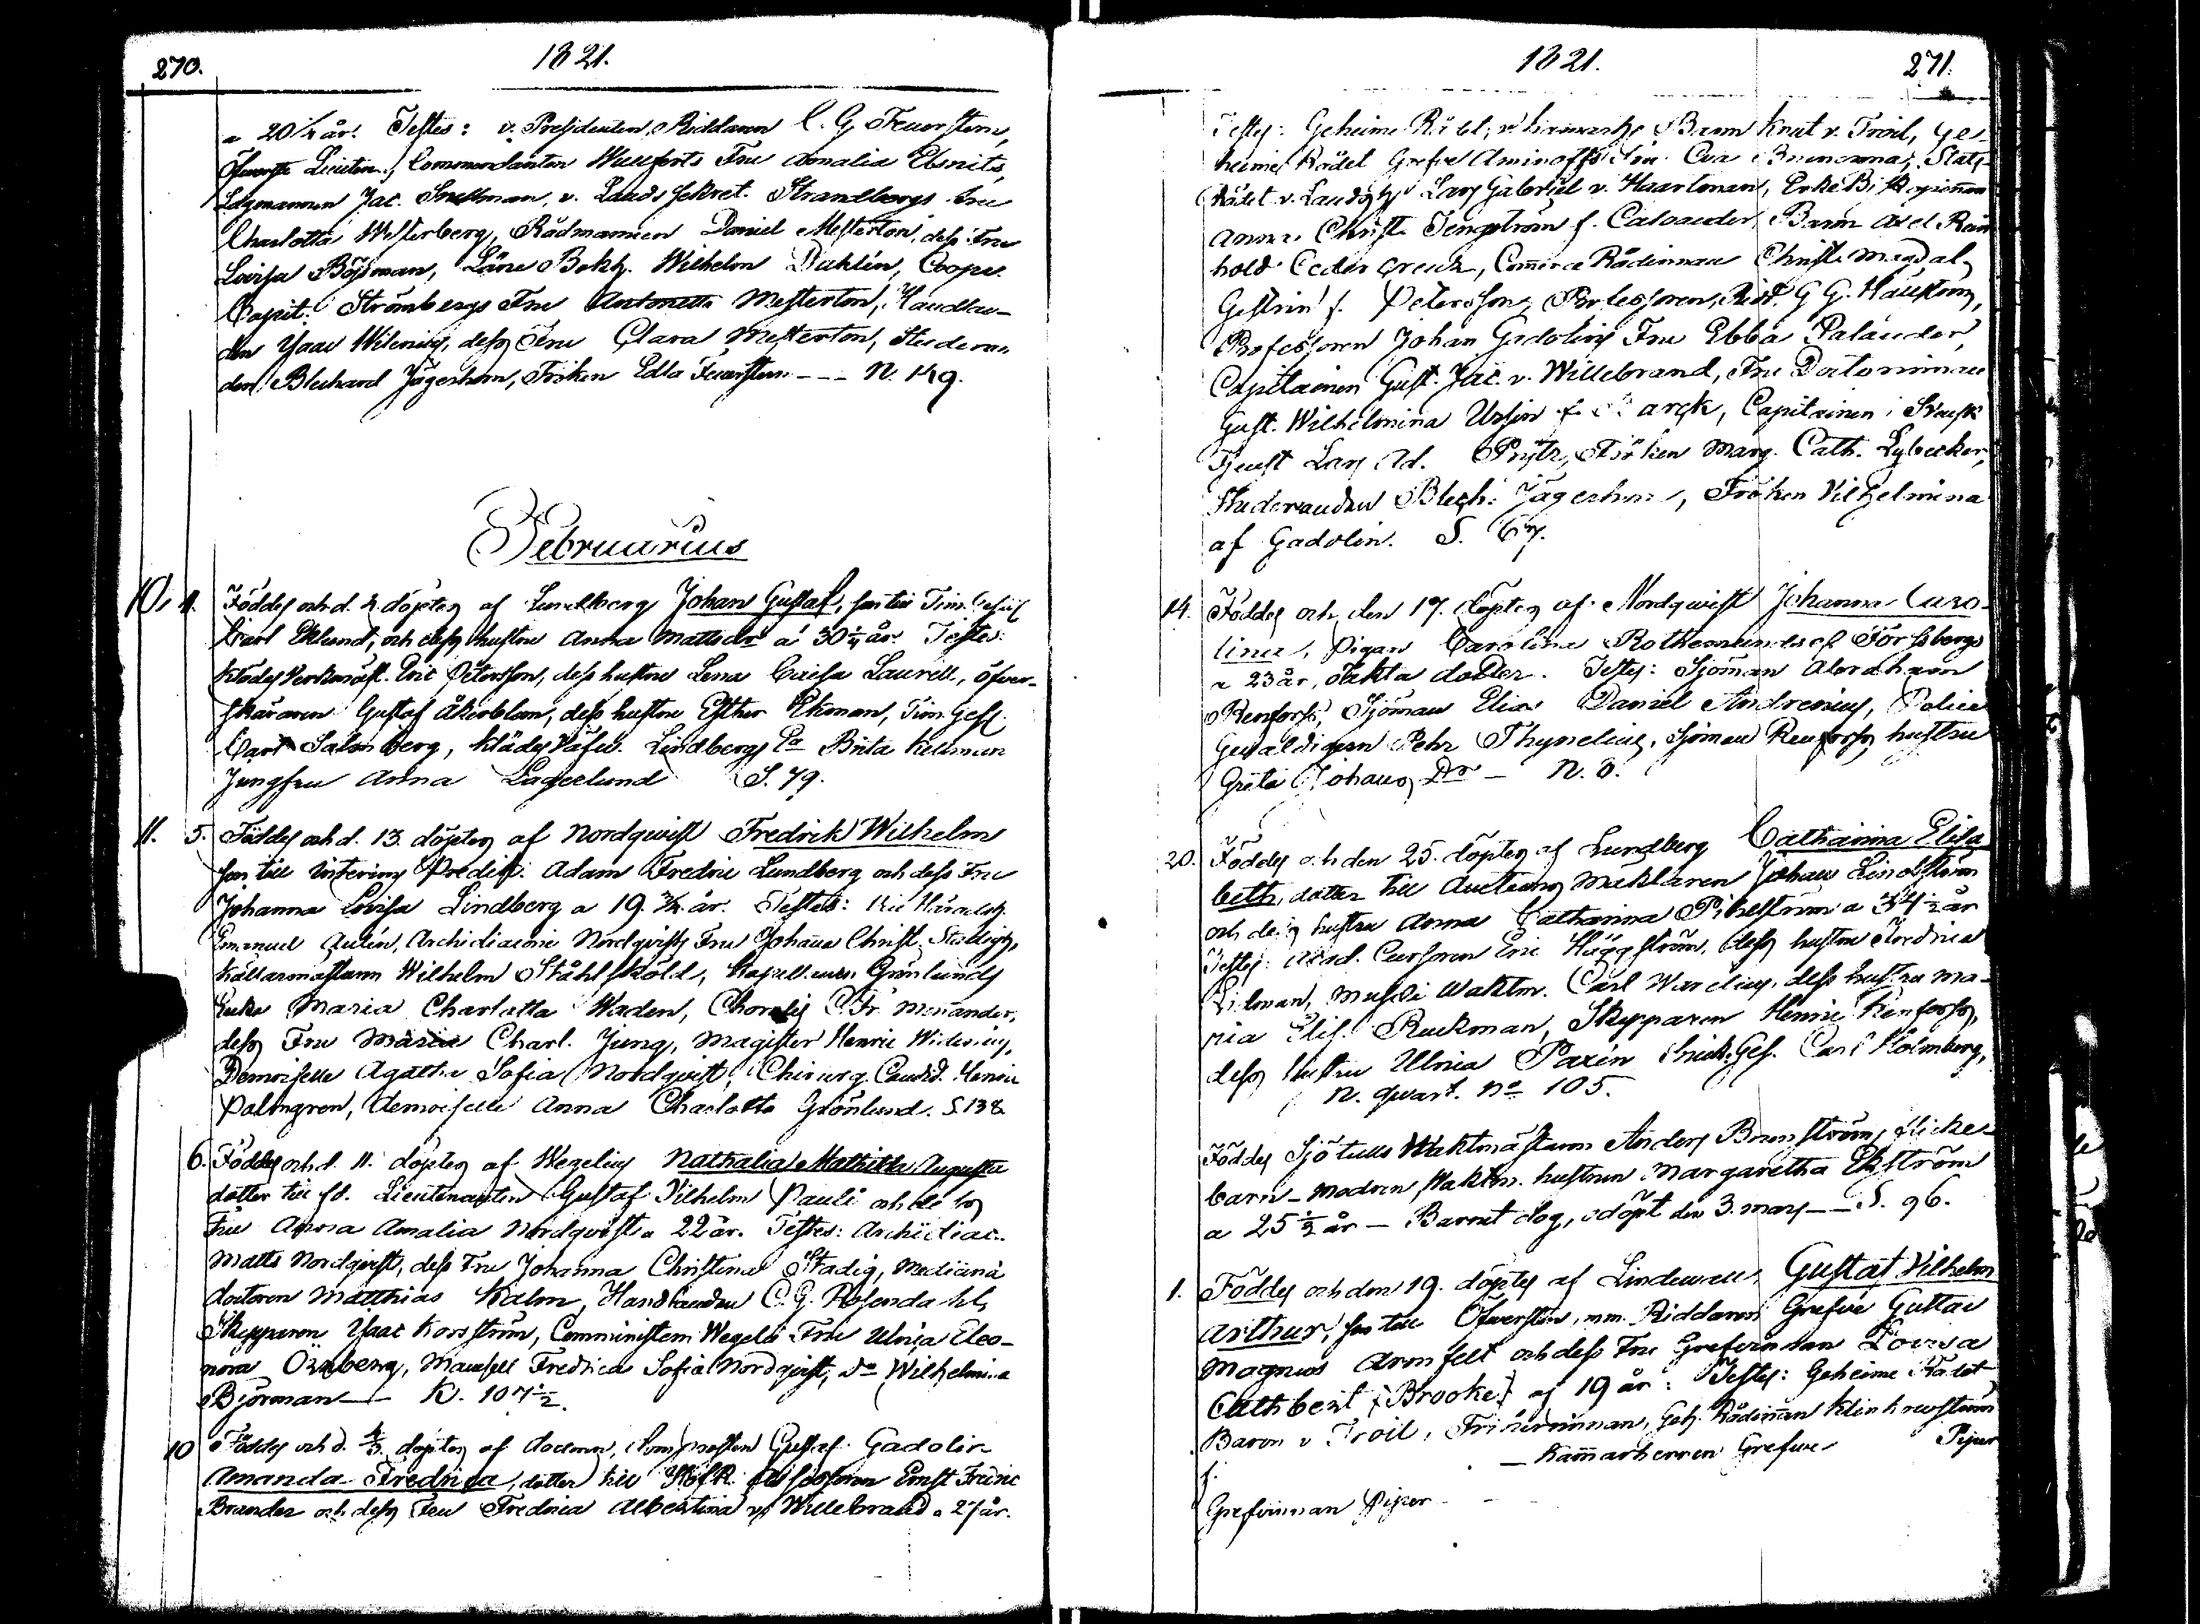 270.
1821.
a 20 1/4 år. Testes: v. Presidenten, Riddaren C. G. Feuerstern,
Öfverste Lieuten., Commendanten Fru Amalia Ebenits,
Lagmannen Jac. Snellman, v. Lands Sekret. Strandbergs Fru
Charlotta Westerberg, Rådmannen Daniel Mesterton, dess Fru
Lovisa Bösman, Läns Bokh. Wilhelm Dahlén, Coopv.
Capit. Strömbergs Fru Antonetta Mesterton, Handlan-
den Isaac Wileniis, dess Fru Clara Mesterton, Studeran-
den Blechard Jägerhorn, Fröken Edla Feuerstern --- N. 149.
Februarius
10. 1. Föddes och d. 2 döptes af Lundberg Johan Gustaf, son till Tim. Gesäll
Carl Eklund, och dess hustru Anna Mattsdr a 30 1/4 år. Testes:
Klädes Verkmäst. Eric Petersson, dess hustru Lena Caisa Laurell, öfver-
skäraren Gustaf Åkerblom, dess hustru Esther Ekman, Tim. Gess.
Carl Salmberg, Klädes Väfv. Lindbergs Ea Brita Kellman
Jungfru Anna Lagerlund S. 79.
11. 5. Föddes och d. 13 döptes af Nordqwist Fredrik Wilhelm
son till Interims Predik. Adam Fredric Lundberg och dess Fru
Johanna Lovisa Lindberg a 19 3/4 år. Testes: Häradsh.
Emanuel Aulén, Archidiaconi Nordqvists Fru Johanna Christ. Stadigh,
Källarmästaren Wilhelm Ståhlsköld, Kapellanen Grönlunds
Enka Maria Charlotta Waden, Choralis C. Fr. Menander,
dess Fru Maria Charl. Jung, Magister Henric Widenius,
Demoiselle Agatha Sofia Nordqvist, Chirurg. Candid. Henric
Palmgren, demoiselle Anna Charlotta Grönlund. S. 138
6. Föddes och d. 11. döptes af Wegelius Nathalia Mathilda Augusta
dotter till fd. Lieutenanten Gustaf Vilhelm Pauli och dess
Fru Anna Amalia Nordqvist a 22 år. Testes: Archidiac.
Matts Nordqvist, dess Fru Johanna Christina Stadig, Medicinä
doctoren Matthias Kalm, Handlanden C. G. Rosendahl,
Skepparen Isaac Korsström, Comministern Wegelii Fru Ulrica Eleo-
nora Örnberg, Mamsell Fredrica Sofia Nordqvist, Do Wilhelmina
Björman — K. 107 1/2.
10 Föddes och d. 4/3 döptes af docenten, Domprosten Gustaf Gadolin
Amanda Fredrica, dotter till HofR. Assessoren Ernst Fredric
Brander och dess Fru Fredrica Albertina v. Willebrand a 27 år.
1821.
271.
Testes: Geheime Rådet, Baron Knut v. Troil, Ge-
heime Rådet Grefve Aminoffs Fru Eva Brunerona, Stats
Rådet v. Landsh. Lars Gabriel v. Haartman, Erke Biskopinnan
Anna Christ. Tengström f. Caloander, Baron Axel Rein
hold Cedercreutz, Commerce Rådinnan Christ. Magdal.
Gestrin f. Petersson, Professoren, Ridd. G. G. Hällström,
Professoren Johan Gadolins Fru Ebba Palander,
Capitainen Gust. Jac. v. Willebrand, Fru
Gust. Wilhelmina Ursin f. Capitainen i Svensk
Tjenst Lars Ad. Prytz, Fröken Marg. Cath. Lybecker,
Studeranden Blech. Jägerhorn, Fröken Vilhelmina
af Gadolin. S. 67.
14. Föddes och den 17. döptes af Nordqwist Johanna Caro-
lina, Pigan Carolina Försbergs
a 23 år, oäkta dotter. Testes: Sjöman Abraham
Renfors, Sjöman Elias Daniel Andrenius, Police
Gevaldigern Pehr Thynelius, Sjöman Renforss hustru
Greta Johans Dr — N. 8.
20. Föddes och den 25. döptes af Lundberg Catharina Elisa
beth, dotter till Auctions Mäklaren Johan Lindström
och dess hustru Anna Catharina Pihlström a 34 1/2 år
Testes: Acad. Cursoren Eric Häggström, dess hustru Fredrica
Musici Waktm. Carl Warelius, dess hustru Ma-
ria Elis. Ruckman, Skepparen Henric Renforss,
dess hustru Ulrica Paxén Snick. Ges. Carl Holmberg,
N. qvart. No 105.
Föddes Sjötulls Waktmästaren Anders Brunström, flicke
barn - modren, Waktm. hustrun Margaretha Ekström
a 25 1/2 år — Barnet dog, odöpt den 3. mars — S. 96.
1. Föddes och den 19. döptes af Lindewall, Gustaf Vilhelm
Arthur, son till Öfversten, mm. Riddaren Grefve Gustaf
Magnus Armfelt och dess Fru Grefvinnan Lovisa
Cuthbert (Brooke) af 19 år: Testes: Geheime Rådet
Baron v. Troil, Friherrinnan, Geh. Rådinnan Klinkowström
f. — Kammarherren Grefve Piper
Grefvinnan Piper - -